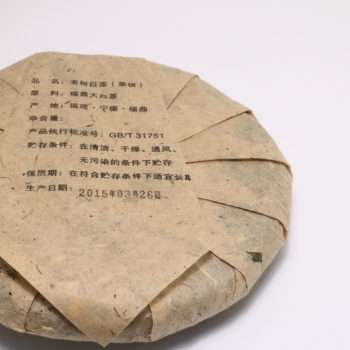 品 名：老树白茶（茶饼）
原 料：福鼎大白茶
产 地：福建·宁德·福鼎
净含量：
产品执行标准号：GB/T 31751
贮存条件：在清洁、干燥、通风、
无污染的条件下贮存
保质期：在符合贮存条件下适宜长期
生产日期：2015年03月26日